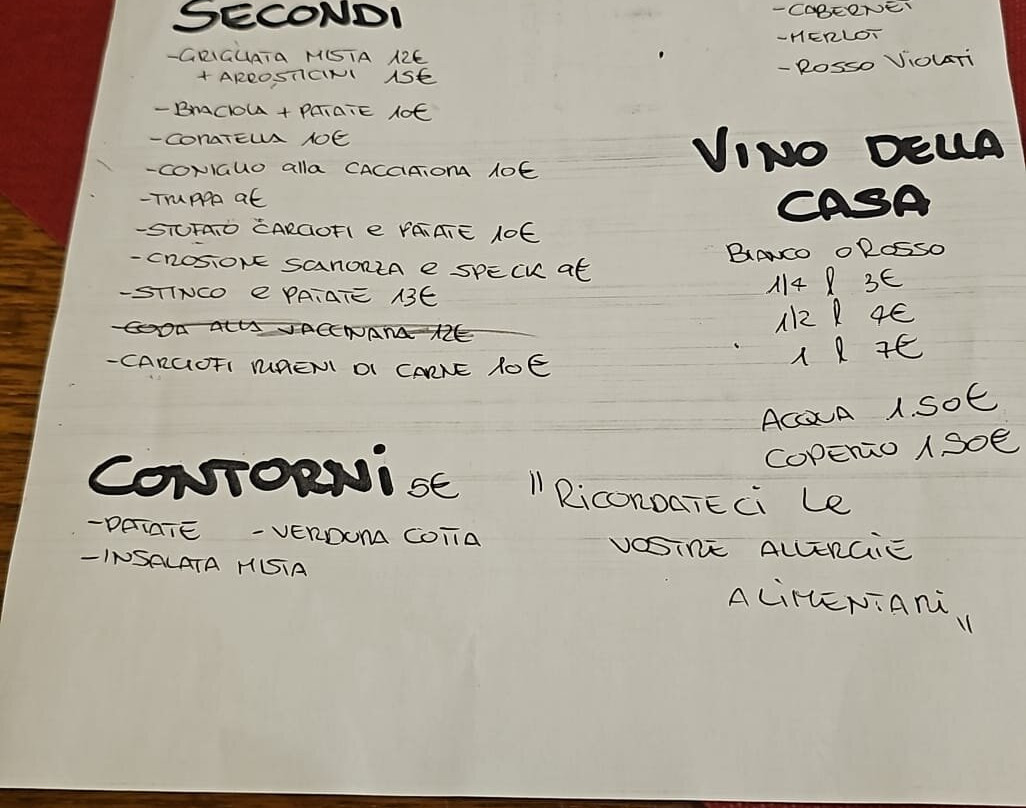 SECONDI
-GRIGLIATA MISTA 12€
+ ARROSTICINI 15€
-BRACIOLA + PATATE 10€
-CORATELLA 10€
-CONIGLIO alla CACCIATORA 10€
-TRIPPA 9€
-STUFATO CARCIOFI e PATATE 10€
-CROSTONE SCAMORZA e SPECK 9€
-STINCO e PATATE 13€
-CODA ALLA VACCINARA 12€
-CARCIOFI RIPIENI DI CARNE 10€
CONTORNI 5€
-PATATE -VERDURA COTTA
-INSALATA MISTA
-CABERNET
-MERLOT
-ROSSO VIOLATI
VINO DELLA
CASA
BIANCO O ROSSO
1/4 l 3€
1/2 l 4€
1 l 7€
ACQUA 1.50€
COPERTO 1.50€
"RICORDATECI LE
VOSTRE ALLERGIE
ALIMENTARI"